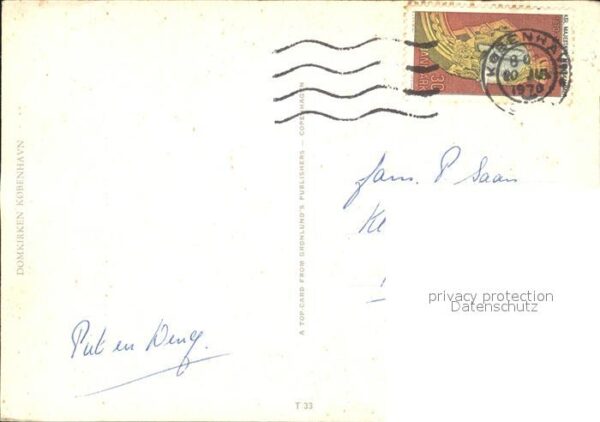 DOMKIRKEN KØBENHAVN
A TOP-CARD FROM GRØNLUND'S PUBLISHERS — COPENHAGEN
T 33
DANMARK
30
KØBENHAVN
1970
fam. P Saan
Kl
Put en Weng
privacy protection
Datenschutz